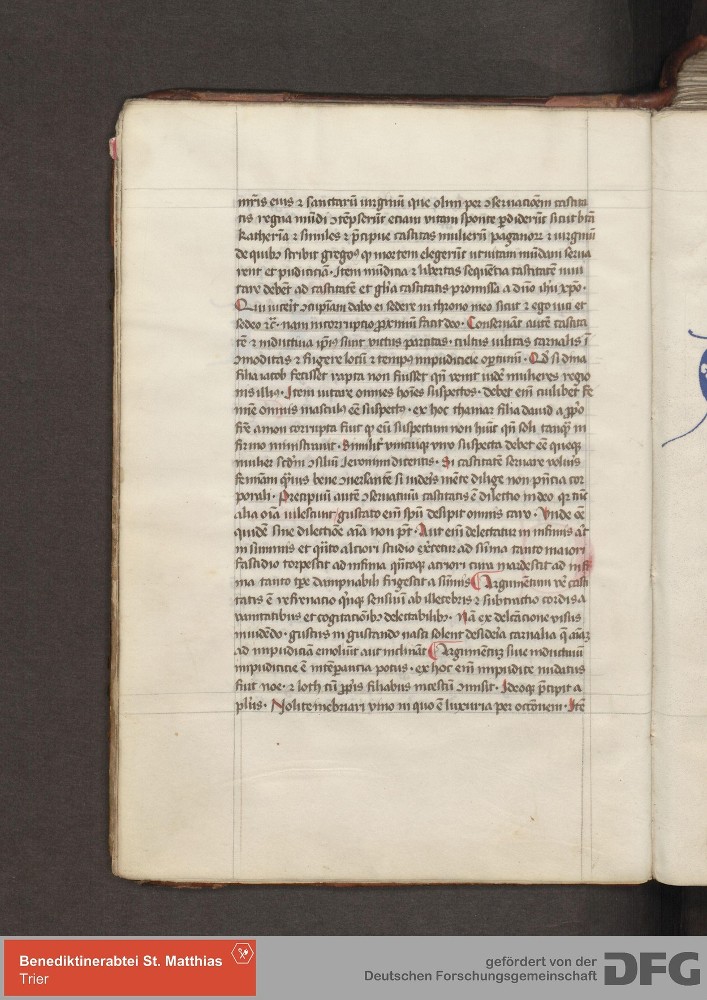 mr̄is eius ⁊ sanctarū uirginū que olim per ɔseruacioēm castita
tis regna mūdi ɔtēpserūt etiam vitam sponte ꝑdiderūt sicut btā
katherīa ⁊ similes ⁊ p̄cipue castitas mulierū paganoꝝ ⁊ uirginū
de quibꝯ scribit gregoꝯ ꝙ mortem elegerūt ut uitam mūdam serua
rent et pudiciciā. Item mūdicia ⁊ libertas sequētia castitatē inui
tare debēt ad castitatē et gl̄ia castitatis promissa a dn̄o ih̄u xp̄o.
Qui uicerit ɔcupiam dabo ei sedere in throno meo sicut ⁊ ego uici et
sedeo ⁊c̄. nam incorruptio ꝓximū facit deo. Conseruāt autē castita
tē ⁊ inductiua ip̄ius sunt victus parcitas. cultus vilitas carnalis ī
ɔmoditas ⁊ fugere locū ⁊ tempꝯ impudicicie oportunū. Qd̓ si dina
filia iacob fecisset rapta non fuisset qn̄ venit uidē mulieres regio
nis illiꝯ. Item uitare omnes hoīes suspectos. debet eni̅ cuilibet fe
mīe omnis masculꝯ eē suspectꝯ. ex hoc thamar filia dauid a ꝓprio
fr̄e amon corrupta fuit ꝙ eū suspectum non hūit qn̄ soli tanqꝫ in
firmo ministrauit. Similit̓ vnicuiqꝫ viro suspecta debet eē queqꝫ
mulier scdm̄ ɔsiliū Jeronimi dicentis. Si castitatē seruare volūis
feminam quāuis bene ɔuersantē si uideris mēte dilige non pn̄cia cor
porali. Precipuū autē ɔseruatiuū castitatis ē dilectio in deo qr tūc
alia oīa vilescunt. gustato eni̅ spū desipit omnis caro. Vnde eē
quidē sine dilectiōe aīa non pt̄. Aut eni̅ delectatur in infimis aūt
in sūmmis et qūto alciori studio exercetur ad sūma tanto maiori
fastidio torpescit ad infima qūtoqꝫ acriori cura inardescit ad infi
ma tanto tpe dampnabili frigescit a sūmis Argumētum vē casti
tatis ē refrenatio quinqꝫ sensuū ab illecebris ⁊ subtractio cordis a
vanitatibus et cogitacōibꝯ delectabilibꝯ. Nā ex delc̄acione visus
in uidēdo. gustus in gustando nasci solent desideīa carnalia q̄ aīaꝫ
ad impudiciā emoliūt aut inclināt Argumētū siue inductiuū
impudicicie ē intēperancia potus. ex hoc eni̅ impudice nudatus
fuit noe. ⁊ loth cū ꝓpriis filiabus incestū ɔmisit. Ideoqꝫ p̄cipit a
pl̄us. Nolite inebriari vino in quo ē luxuria per occōnem. Itē
Benediktinerabtei St. Matthias
Trier
gefördert von der
Deutschen Forschungsgemeinschaft
DFG